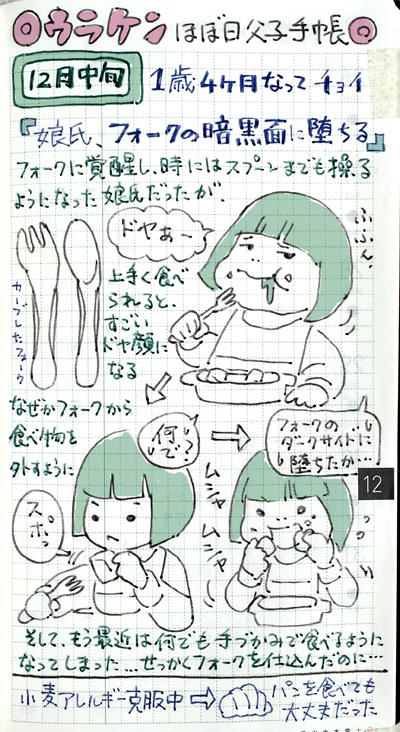 ◎ウラケン ほぼ日父子手帳◎
12月中旬
1歳4ヶ月なってチョイ
『娘氏、フォークの暗黒面に堕ちる』
フォークに覚醒し、時にはスプーンまでも操る
ようになった娘氏だったが、
ドヤぁ〜
ふふん、
カーブしたフォーク
上手く食べ
られると、
すごい
ドヤ顔に
なる
なぜかフォークから
食べ物を
外すように
何で?
フォークの
ダークサイドに
堕ちたか…
12
スポッ
ムシャ
ムシャ
そして、もう最近は何でも手づかみで食べるように
なってしまった…せっかくフォークを仕込んだのに…
小麦アレルギー克服中⇨
パンを食べても
大丈夫だった